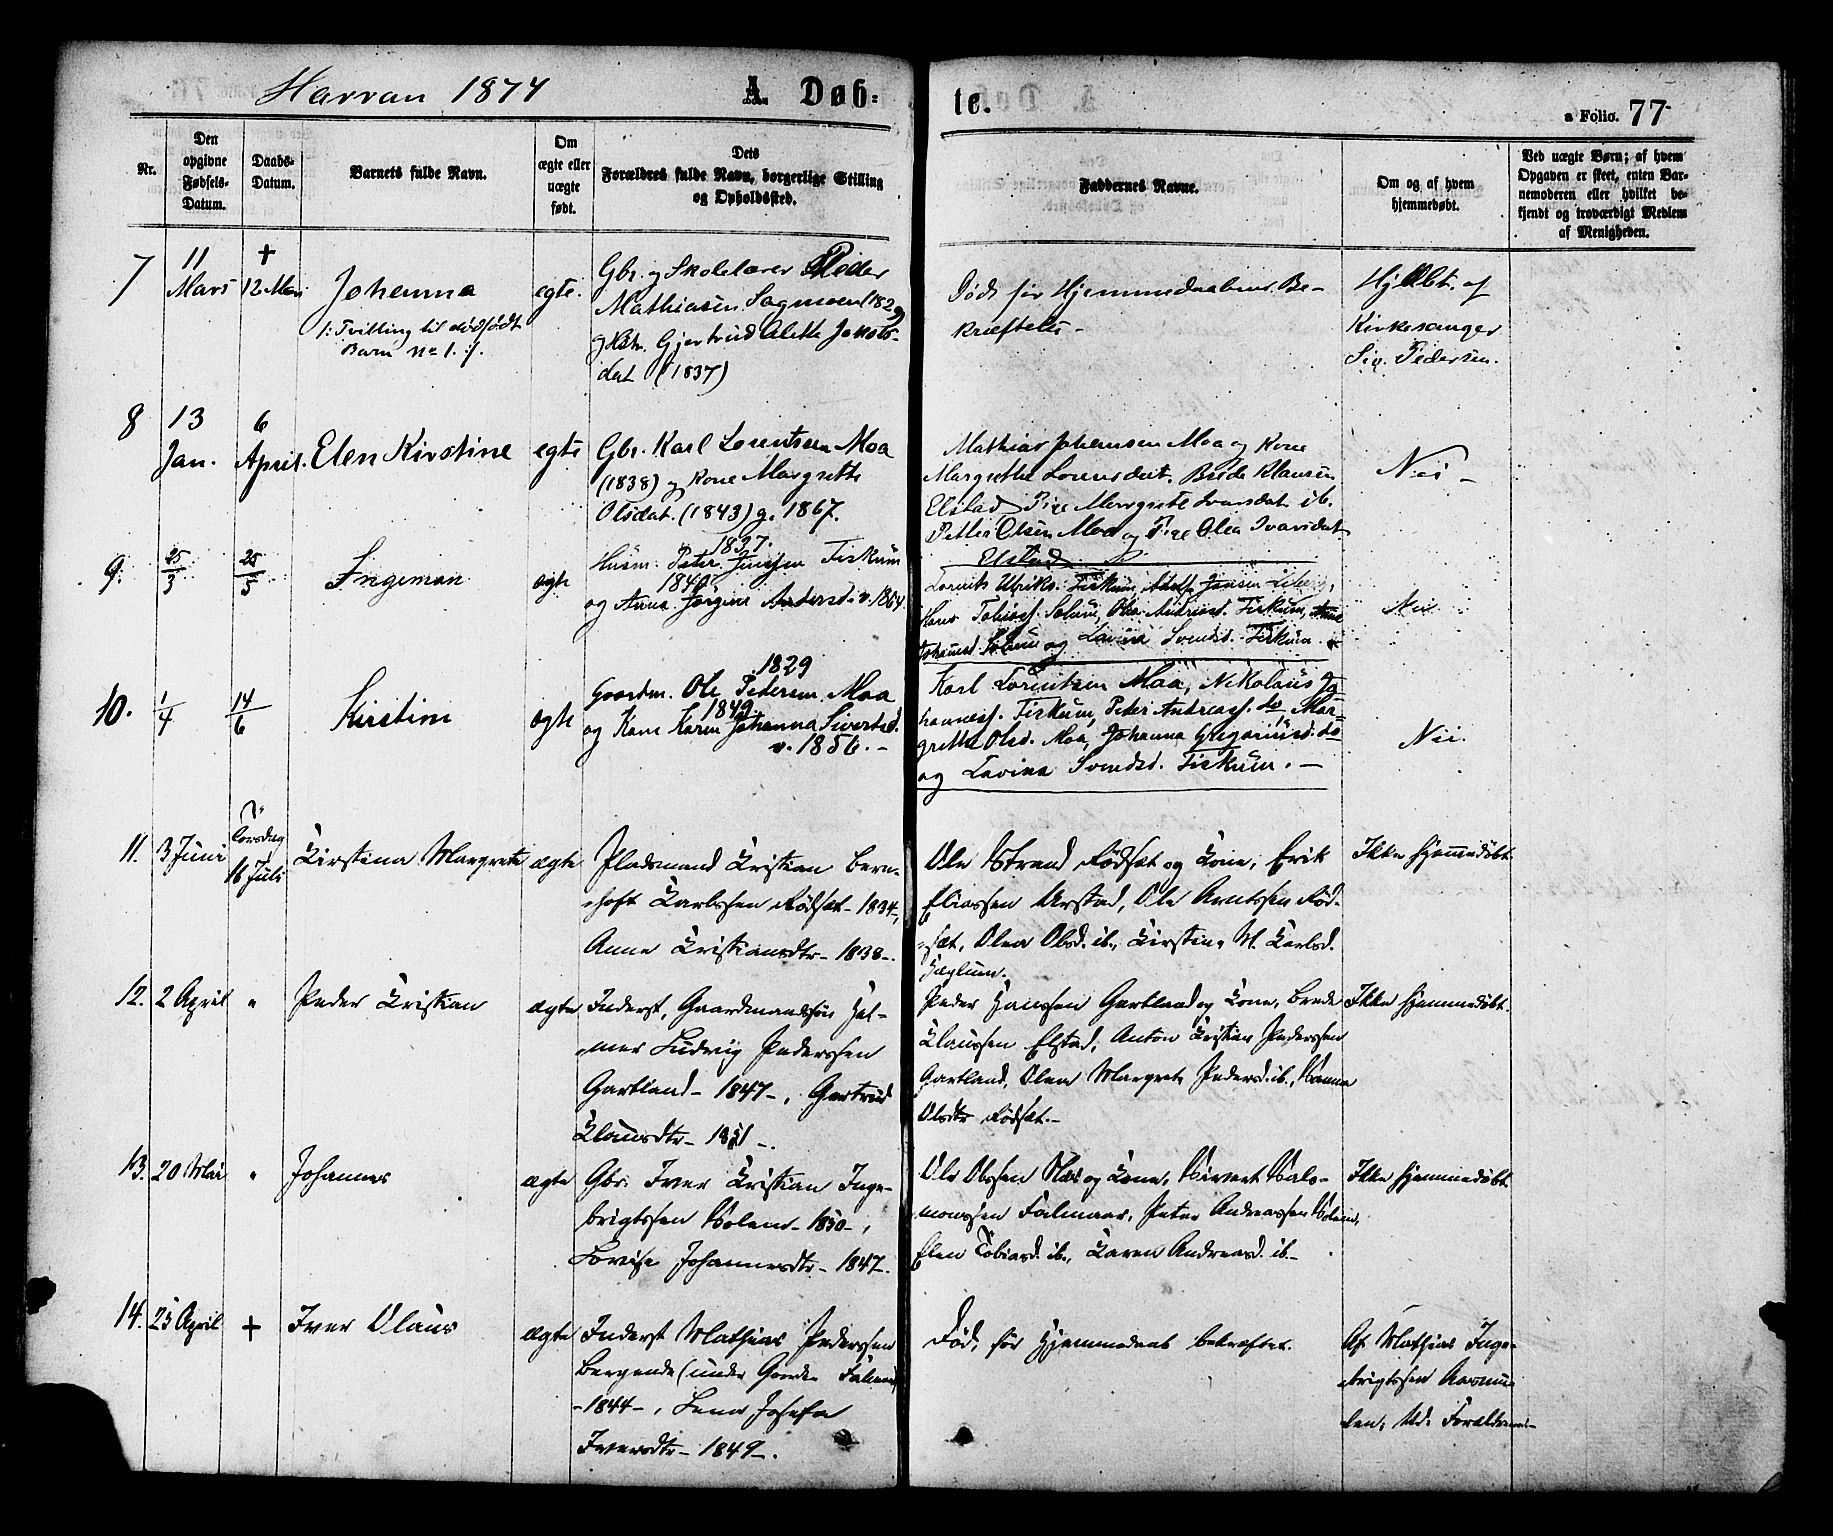 Harran 1874
A. Døb-
te.
a Folio. 77
Nr.
Den opgivne Fødsels-Datum.
Daabs-Datum.
Barnets fulde Navn.
Om ægte eller uægte født.
Dets Forældres fulde Navn, borgerlige Stilling og Opholdssted.
Faddernes Navne.
Om og af hvem hjemmedøbt.
Ved uægte Børn; af hvem Opgaven er skeet, enten Barnemoderen eller hvilket bekjendt og troværdigt Medlem af Menigheden.
7
11 Mars
+ 12 Mars
Johanna
/: Tvilling til dødfødt
Barn No 1. :/
egte.
Gbr. og Skolelærer Peder
Mathiasen Sagmoen (1829)
og Hstr. Gjertrud Aletta Jakobs-
dat (1837)
Død før Hjemmedaabens Be-
kræftelse -
Hj.døbt. af
Kirkesanger
Siv. Pedersen.
8
13 Jan.
6 April.
Elen Kirstine
egte
Gbr. Karl Lorentsen Moa
(1838) og Kone Margrethe
Olsdat. (1843) g. 1867.
Mathias Johansen Moa og Kone
Margrethe Lorensdat. Brede Klausen
Elstad Pige Margrete Ivarsdat. ib.
Petter Olsen Moa og Pige Olea Ivarsdat
Elstad
Nei -
9.
25/3
25/5
Ingeman
ægte
1837.
Husm. Peter Jenssen Fiskum
1840
og Anna Jørgine Andersd. v. 1864.
Lornts Ulriks. Fiskum, Adolf Jensen
Hans Tobiass. Solum, Ole Andreass. Fiskum,
Johannesd. Solum og Lavina Svendsd. Fiskum.
Nei
10.
1/4
14/6
Kirstine
ægte
1829
Gaardm. Ole Pedersen Moa
1849.
og Kone Karen Johanna Sivertsd.
v. 1856. -
Karl Lorentsen Moa, Nikolaus Jo-
hanness. Fiskum, Peter Andreass. do Mar-
grethe Olsd. Moa, Johanna Gregoriusd. do
og Lavina Svendsd. Fiskum. -
Nei.
11.
3 Juni
Torsdag
16 Juli
Kirstina Margrete
ægte
Pladsmand Kristian Bern-
hoft Karlssen Rødsæt - 1834 -,
Anne Kristiansdtr - 1838 -.
Ole Strand Rødsæt og Kone, Erik
Eliassen Urstad, Ole Arntssen Rød-
sæt, Olea Olsd. ib., Kirstine M. Karlsd.
Hæglum.
Ikke hjemmedøbt.
12.
2 April
"
Peder Kristian
ægte
Inderst, Gaardmandssøn Hel-
mer Ludvig Pederssen
Gartland - 1847 -, Gjertrud
Klausdtr - 1851 -.
Peder Hanssen Gartland og Kone, Brede
Klaussen Elstad, Anton Kristian Pederssen
Gartland, Olea Margrete Pedersd. ib., Hanna
Olsdtr Rødsæt. -
Ikke hjemmedøbt.
13.
20 Mai
"
Johannes
ægte
Gbr. Iver Kristian Inge-
brigtssen Solem - 1850 -,
Lovise Johannesdtr - 1847 -.
Ole Olssen Næs og Kone, Sivert Salo-
monssen Falmoen, Peter Andreassen Solem,
Elen Tobiasd. ib., Karen Andreasd. ib -
Ikke hjemmedøbt
14.
25 April
+
Iver Olaus
ægte
Inderst Mathias Pederssen
Bergende (under Gaarden Falmoe)
- 1844 -, Lena Josefa
Iversdtr - 1849 -.
Død, før Hjemmedaab bekræftet.
Af Mathias Inge-
brigtssen Aasmu-
len, Ud. Forældrene -